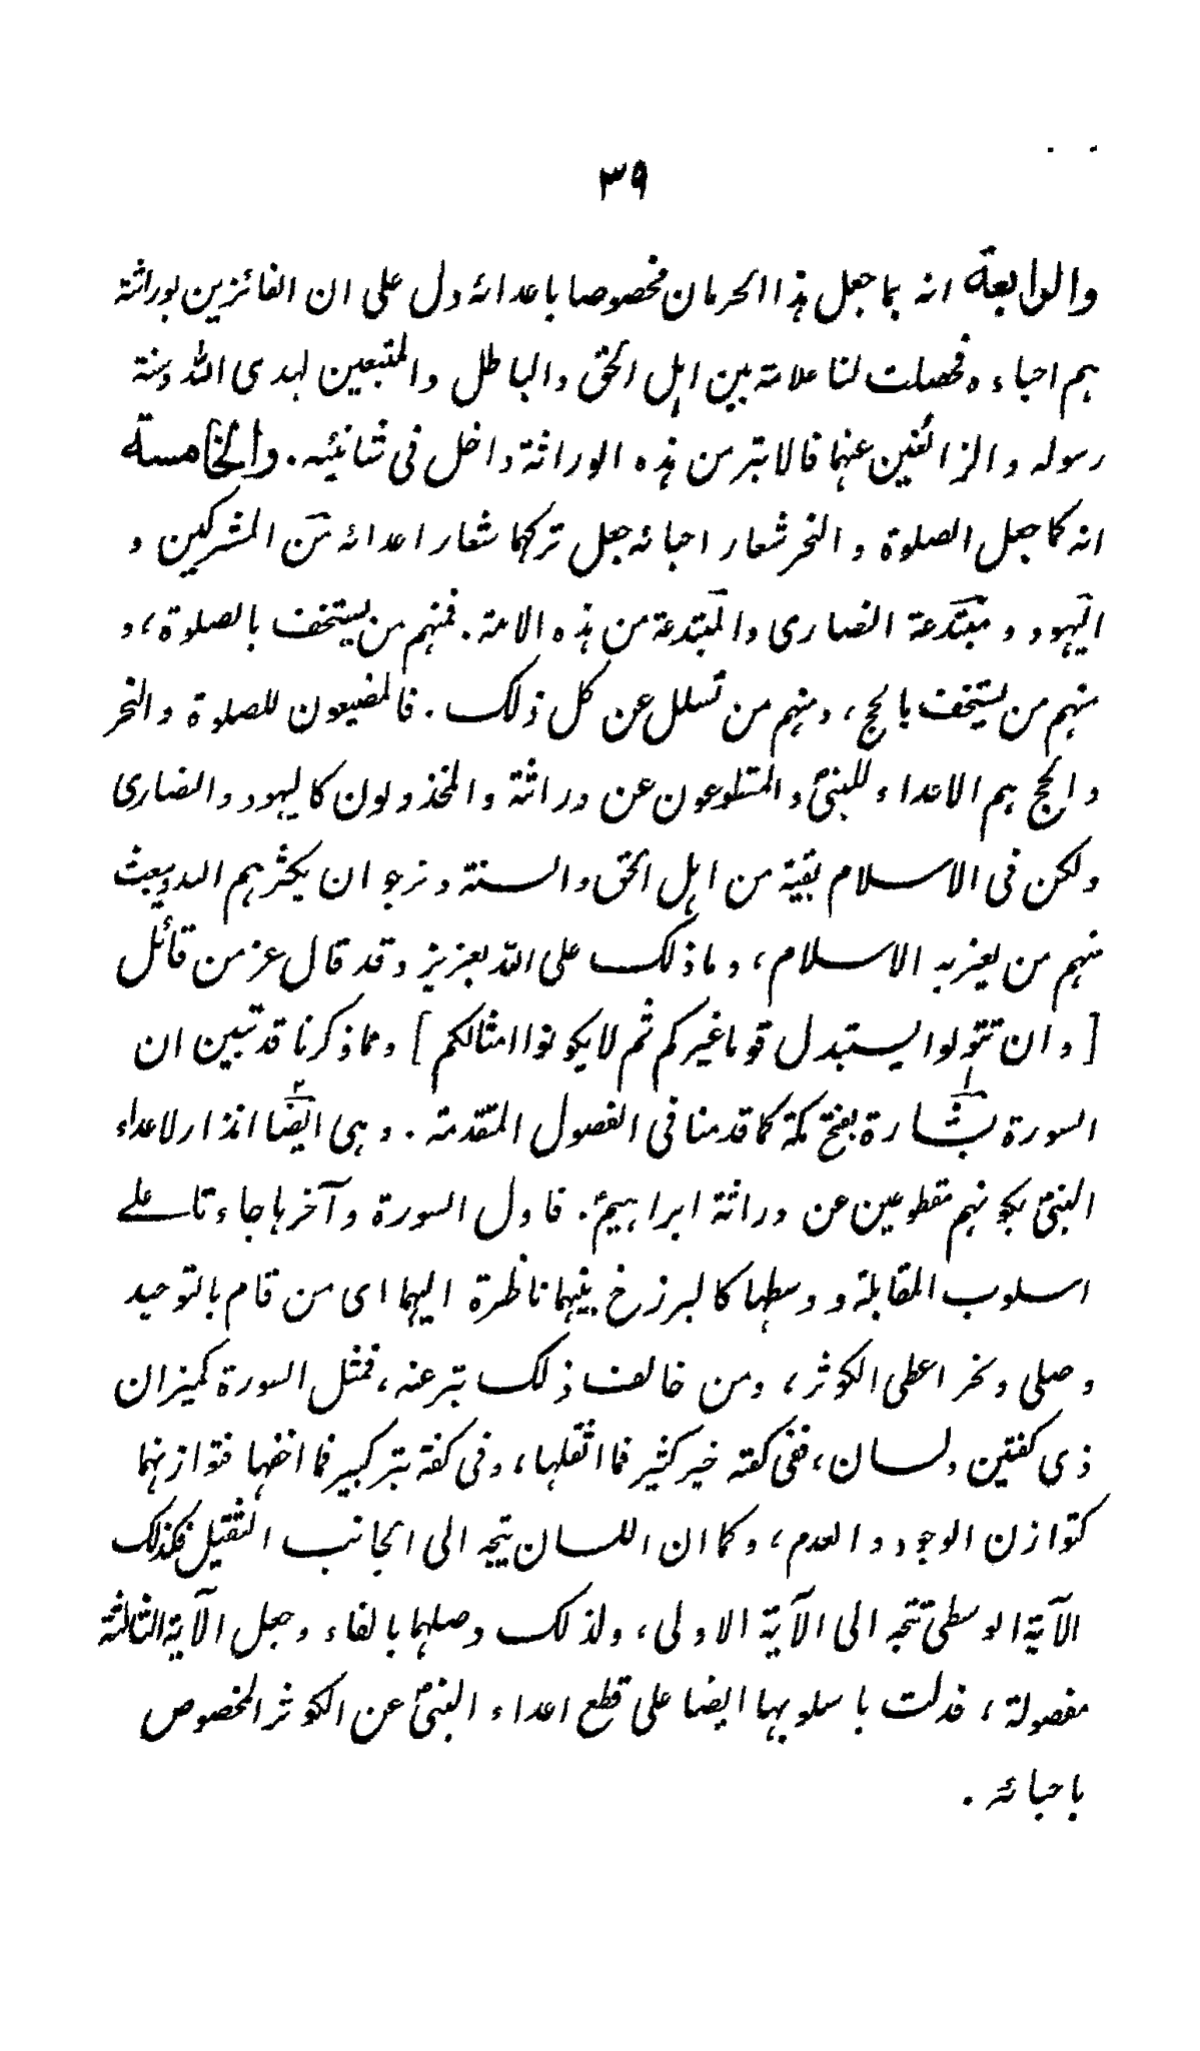 ٣٩
والرابعة انه بما جعل هذا الحرمان مخصوصا باعدائه دل على ان الفائزين بوراثة
هم احباءه فحصلت لنا علامة بين اهل الحق والباطل والمتبعين لهدى الله وسنة
رسوله والزائغين عنهما فالابتر من هذه الوراثة داخل فى شانئيه. والخامسة
انه كما جعل الصلوة والنحر شعار احبائه جعل تركهما شعار اعدائه من المشركين و
اليهود ومبتدعة النصارى والمبتدعة من هذه الامة. فمنهم من يستخف بالصلوة، و
منهم من يستخف بالحج، ومنهم من تسلل عن كل ذلك. فالمضيعون للصلوة والنحر
والحج هم الاعداء للنبىؐ والمقطوعون عن وراثة والمخذولون كاليهود والنصارى
ولكن فى الاسلام بقية من اهل الحق والسنة ونرجو ان يكثرهم الله ويبعث
منهم من يعز به الاسلام، وما ذلك على الله بعزيز وقد قال عز من قائل
[وان تتولوا يستبدل قوما غيركم ثم لا يكونوا امثالكم] ومما ذكرنا قد تبين ان
السورة بشارة بفتح مكة كما قدمنا فى الفصول المتقدمة. وهى ايضا انذار لاعداء
النبىؐ بكونهم مقطوعين عن وراثة ابراهيمؑ. فاول السورة وآخرها جاءتا على
اسلوب المقابلة ووسطها كالبرزخ بينهما ناظرة اليهما اى من قام بالتوحيد
وصلى ونحر اعطى الكوثر، ومن خالف ذلك بتر عنه، فمثل السورة كميزان
ذى كفتين ولسان، ففى كفته خير كثير فما اثقلها، وفى كفة بتر كبير فما اخفها فتوازنهما
كتوازن الوجود والعدم، وكما ان اللسان يتجه الى الجانب الثقيل فكذلك
الآية الوسطى تتجه الى الآية الاولى، ولذلك وصلهما بالفاء وجعل الآية الثالثة
مفصولة، فدلت باسلوبها ايضا على قطع اعداء النبىؐ عن الكوثر المخصوص
باحبائه.